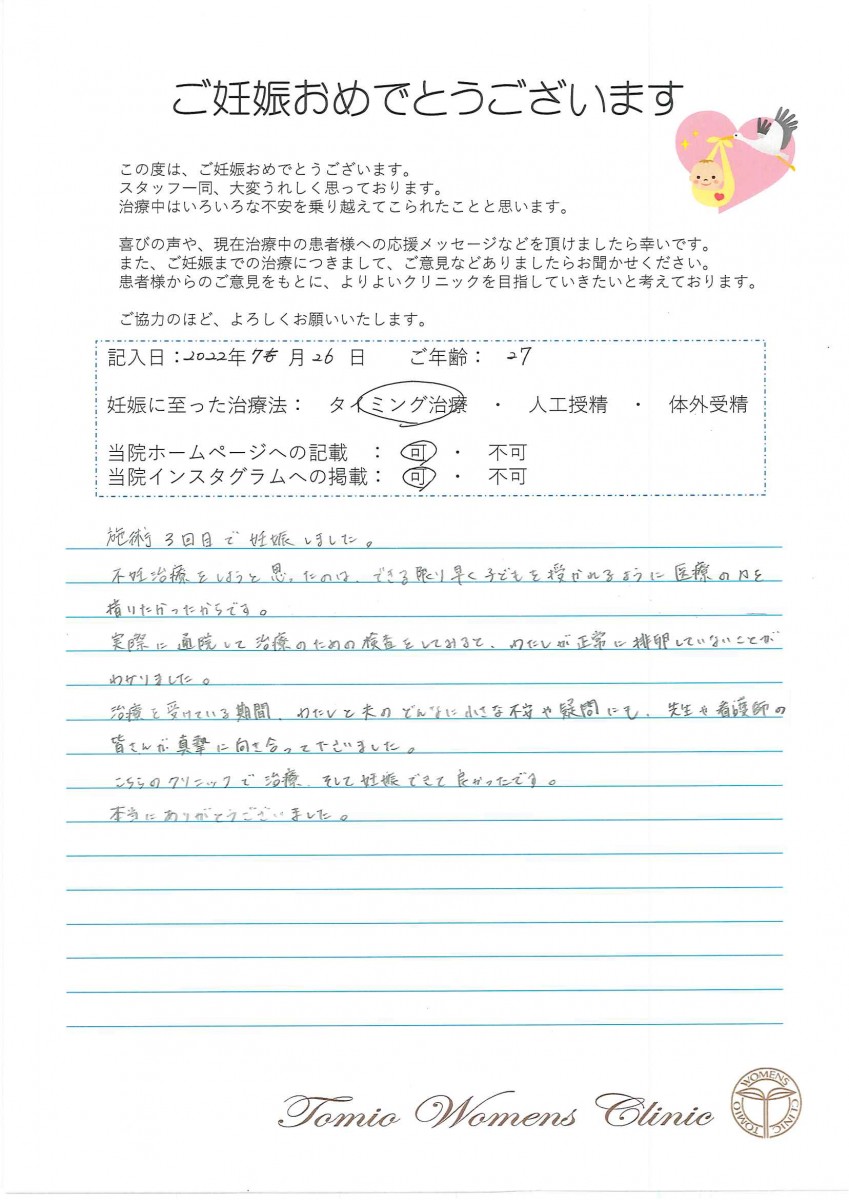 ご妊娠おめでとうございます
この度は、ご妊娠おめでとうございます。
スタッフ一同、大変うれしく思っております。
治療中はいろいろな不安を乗り越えてこられたことと思います。
喜びの声や、現在治療中の患者様への応援メッセージなどを頂けましたら幸いです。
また、ご妊娠までの治療につきまして、ご意見などありましたらお聞かせください。
患者様からのご意見をもとに、よりよいクリニックを目指していきたいと考えております。
ご協力のほど、よろしくお願いいたします。
記入日：2022年 7 月 26 日 ご年齢： 27
妊娠に至った治療法： タイミング治療 ・ 人工授精 ・ 体外受精
当院ホームページへの記載 ： 可 ・ 不可
当院インスタグラムへの掲載： 可 ・ 不可
施術3回目で妊娠しました。
不妊治療をしようと思ったのは、できる限り早く子どもを授かれるように医療の力を
借りたかったからです。
実際に通院して治療のための検査をしてみると、わたしが正常に排卵していないことが
わかりました。
治療を受けている期間、わたしと夫のどんなに小さな不安や疑問にも、先生や看護師の
皆さんが真摯に向き合って下さいました。
こちらのクリニックで治療、そして妊娠できて良かったです。
本当にありがとうございました。
Tomio Womens Clinic
TOMIO WOMENS CLINIC